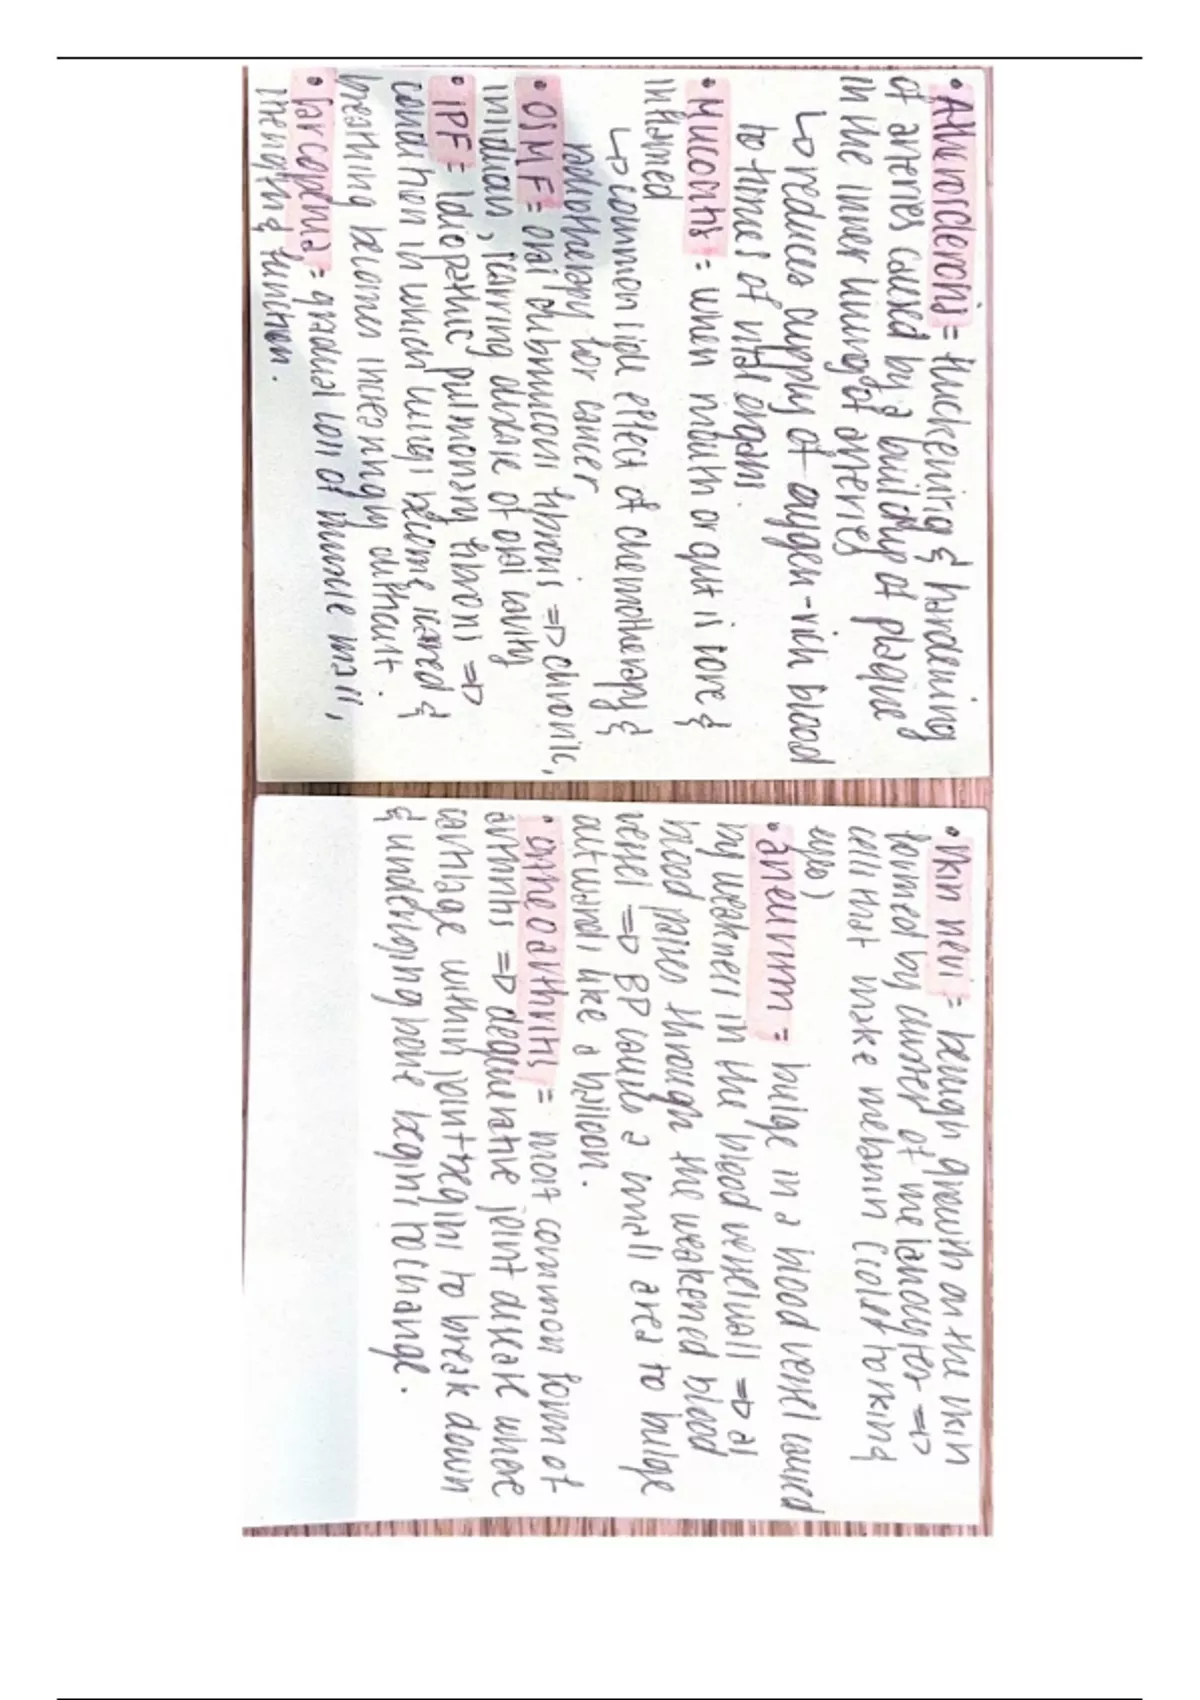 • Atherosclerosis = thickening & hardening
of arteries caused by a buildup of plaque
in the inner lining of arteries
↳ reduces supply of oxygen-rich blood
to tissues of vital organs.
• Mucositis = when mouth or gut is sore &
inflamed
↳ common side effect of chemotherapy &
radiotherapy for cancer
• OSMF = oral submucous fibrosis ⇒ chronic,
insidious, scarring disease of oral cavity
• IPF = idiopathic pulmonary fibrosis ⇒
condition in which lungs become scarred &
breathing becomes increasingly difficult.
• sarcopenia = gradual loss of muscle mass,
strength & function.
• skin nevi = benign growth on the skin
formed by cluster of melanocytes ⇒
cells that make melanin (color to skin &
eyes)
• aneurism = bulge in a blood vessel caused
by weakness in the blood vessel wall ⇒ as
blood passes through the weakened blood
vessel ⇒ BP causes a small area to bulge
outwards like a balloon.
• osteoarthritis = most common form of
arthritis ⇒ degenerative joint disease where
cartilage within joint begins to break down
& underlying bone begins to change.